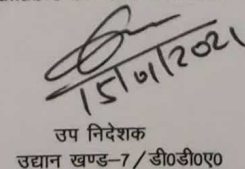 15/01/2021
उप निदेशक
उद्यान खण्ड-7/डी0डी0ए0